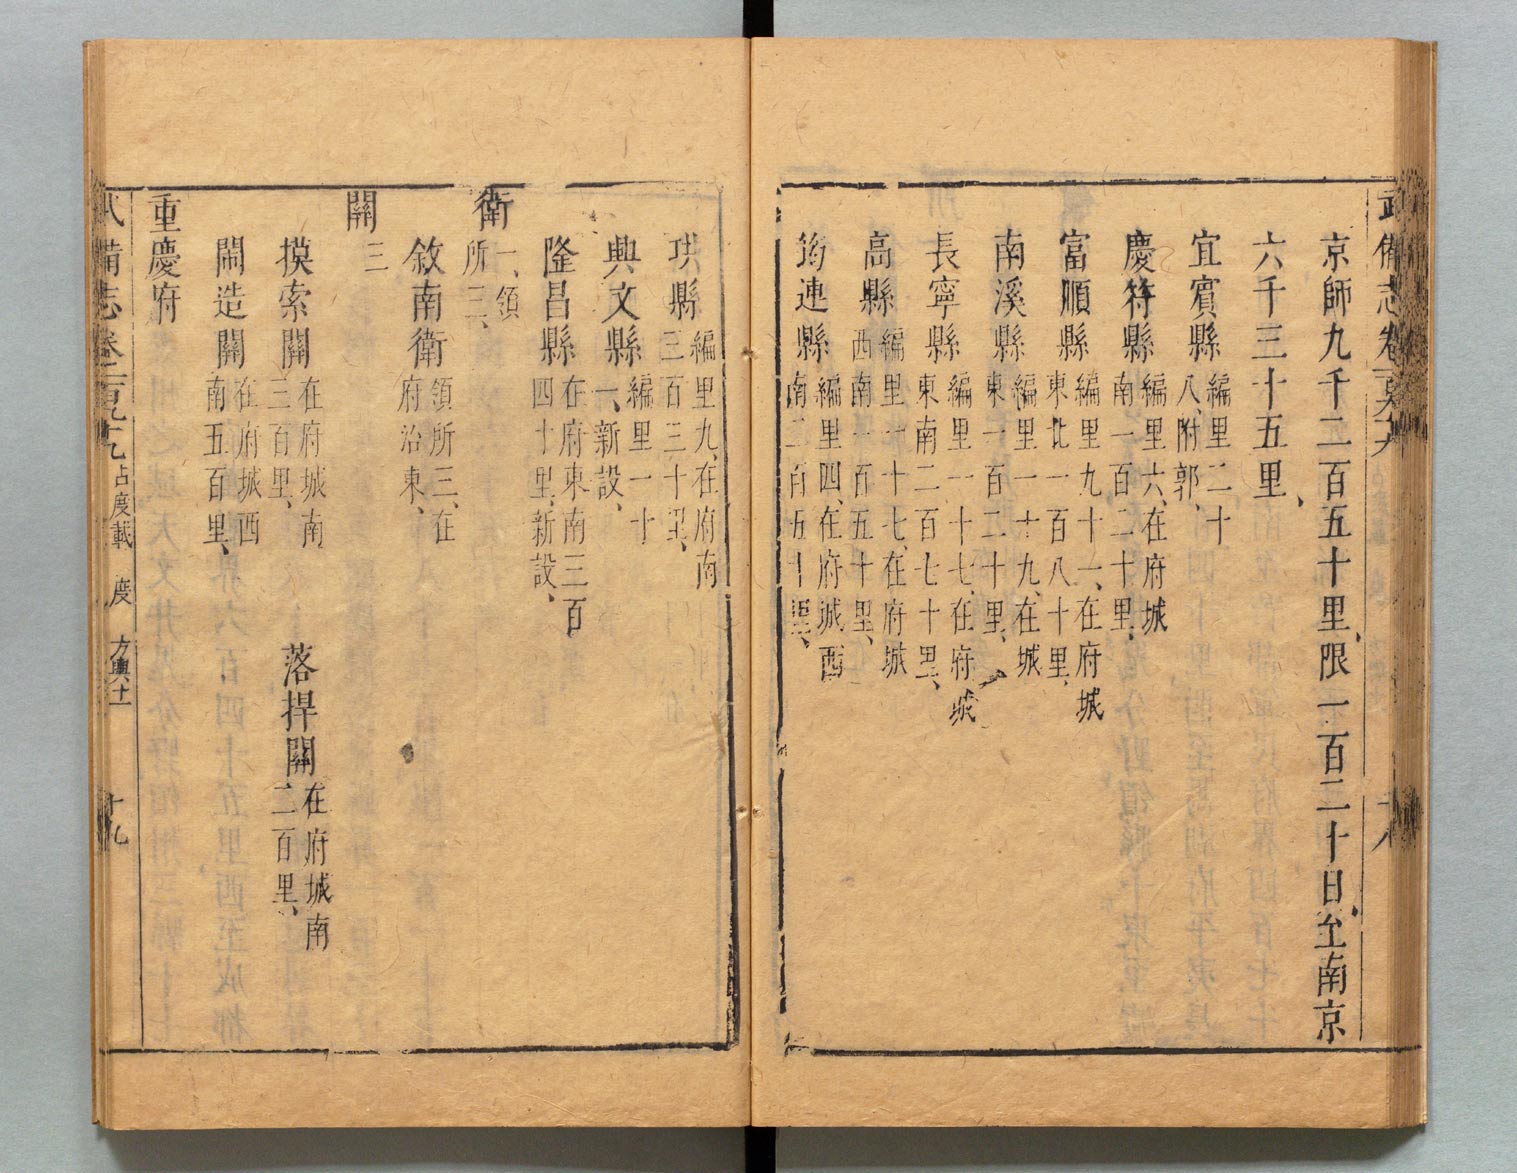 武備志卷
京師九千二百五十里、限一百二十日、至南京
六千三十五里、
宜賓縣 編里二十
八、附郭、
慶符縣 編里六、在府城
南一百二十里、
富順縣 編里九十一、在府城
東北一百八十里、
南溪縣 編里一十九、在城
東一百二十里、
長寧縣 編里一十七、在府城
東南二百七十里、
高縣 編里一十七、在府城
西南一百五十里、
筠連縣 編里四、在府城西
南二百五十里、
珙縣 編里九、在府南
三百三十里、
興文縣 編里一十
一、新設、
隆昌縣 在府東南三百
四十里、新設、
衛 一、領
所三、
敘南衛 領所三、在
府治東、
關 三
摸索關 在府城南
三百里、
落捍關 在府城南
二百里、
閙造關 在府城西
南五百里、
重慶府
武備志卷一百九十九 占度載 度 方輿十一 十九